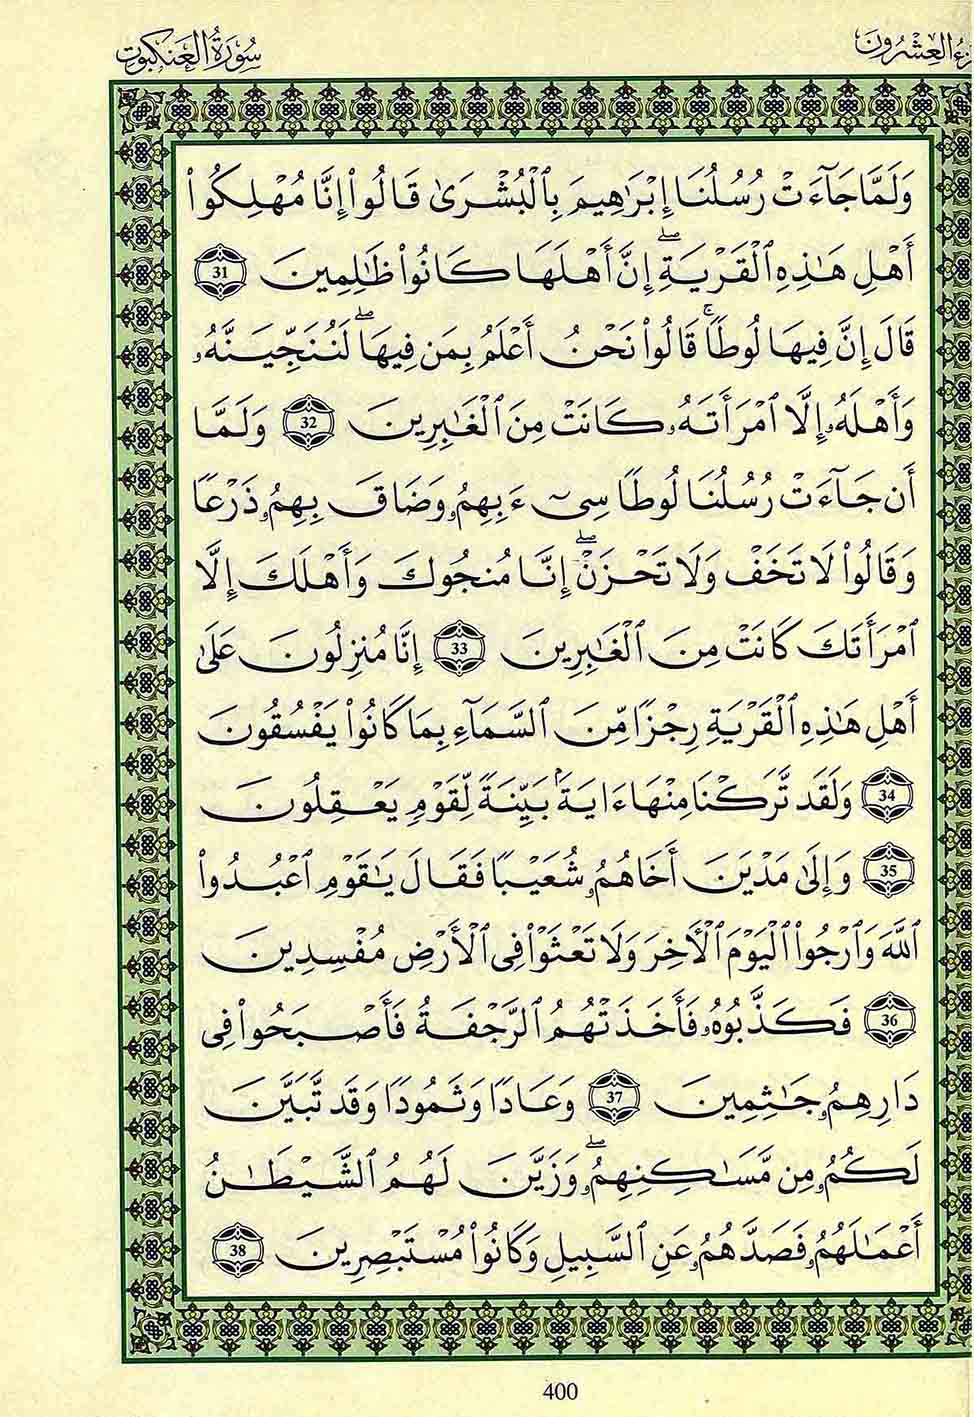 زء العشرون
سورة العنكبوت
وَلَمَّا جَآءَتْ رُسُلُنَا إِبْرَٰهِيمَ بِٱلْبُشْرَىٰ قَالُوا۟ إِنَّا مُهْلِكُوا۟
أَهْلِ هَٰذِهِ ٱلْقَرْيَةِ ۖ إِنَّ أَهْلَهَا كَانُوا۟ ظَٰلِمِينَ 31
قَالَ إِنَّ فِيهَا لُوطًا ۚ قَالُوا۟ نَحْنُ أَعْلَمُ بِمَن فِيهَا ۖ لَنُنَجِّيَنَّهُۥ
وَأَهْلَهُۥ إِلَّا ٱمْرَأَتَهُۥ كَانَتْ مِنَ ٱلْغَٰبِرِينَ 32 وَلَمَّا
أَن جَآءَتْ رُسُلُنَا لُوطًا سِىٓءَ بِهِمُۥ وَضَاقَ بِهِمُۥ ذَرْعًا
وَقَالُوا۟ لَا تَخَفْ وَلَا تَحْزَنْ ۖ إِنَّا مُنجُوكَ وَأَهْلَكَ إِلَّا
ٱمْرَأَتَكَ كَانَتْ مِنَ ٱلْغَٰبِرِينَ 33 إِنَّا مُنزِلُونَ عَلَىٰ
أَهْلِ هَٰذِهِ ٱلْقَرْيَةِ رِجْزًا مِّنَ ٱلسَّمَآءِ بِمَا كَانُوا۟ يَفْسُقُونَ
34 وَلَقَد تَّرَكْنَا مِنْهَآ ءَايَةَۢ بَيِّنَةً لِّقَوْمٍ يَعْقِلُونَ
35 وَإِلَىٰ مَدْيَنَ أَخَاهُمُۥ شُعَيْبًا فَقَالَ يَٰقَوْمِ ٱعْبُدُوا۟
ٱللَّهَ وَٱرْجُوا۟ ٱلْيَوْمَ ٱلْأَخِرَ وَلَا تَعْثَوْا۟ فِى ٱلْأَرْضِ مُفْسِدِينَ
36 فَكَذَّبُوهُۥ فَأَخَذَتْهُمُ ٱلرَّجْفَةُ فَأَصْبَحُوا۟ فِى
دَارِهِمُۥ جَٰثِمِينَ 37 وَعَادًا وَثَمُودًا وَقَد تَّبَيَّنَ
لَكُمُۥ مِن مَّسَٰكِنِهِمُۥ ۖ وَزَيَّنَ لَهُمُ ٱلشَّيْطَٰنُ
أَعْمَٰلَهُمُۥ فَصَدَّهُمُۥ عَنِ ٱلسَّبِيلِ وَكَانُوا۟ مُسْتَبْصِرِينَ 38
400